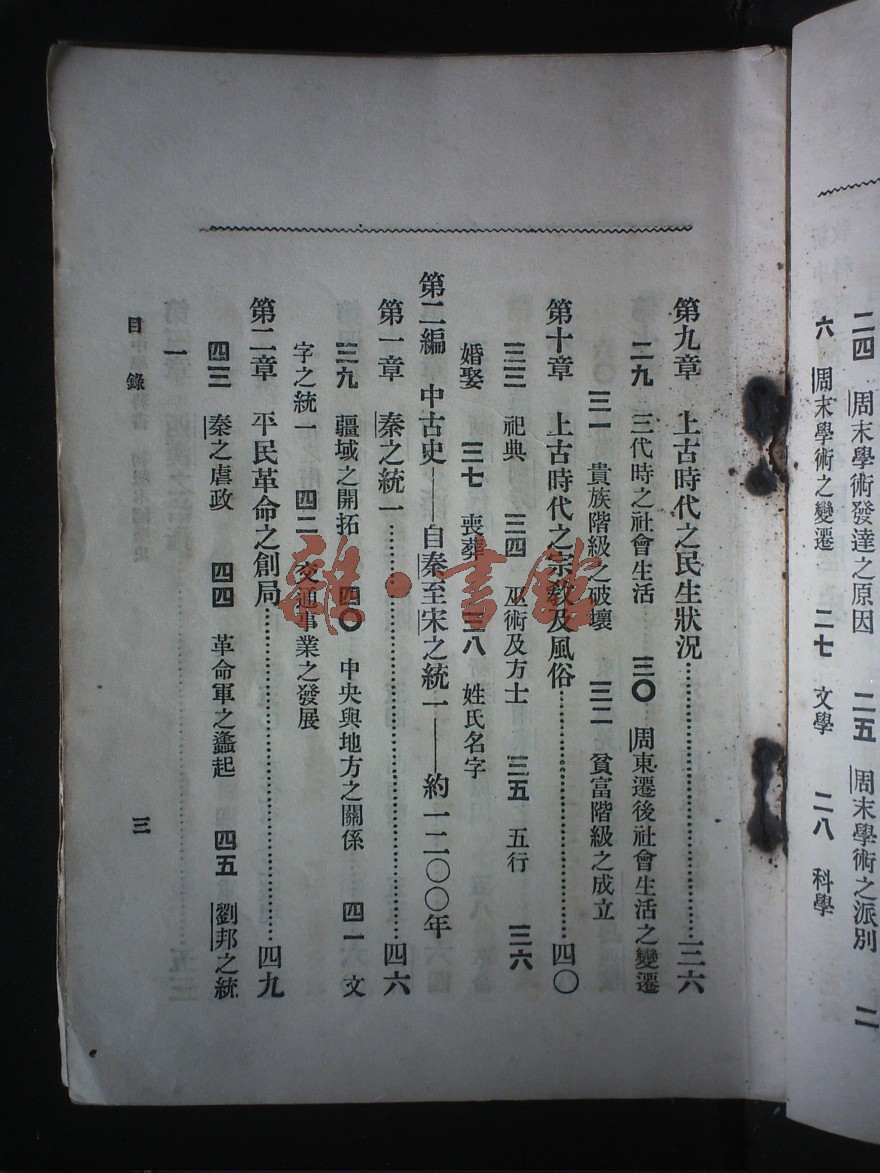 二四　周末學術發達之原因　二五　周末學術之派別　二
六　周末學術之變遷　二七　文學　二八　科學
第九章　上古時代之民生狀況…………三六
二九　三代時之社會生活　三〇　周東遷後社會生活之變遷
三一　貴族階級之破壞　三二　貧富階級之成立
第十章　上古時代之宗教及風俗…………四〇
三三　祀典　三四　巫術及方士　三五　五行　三六
婚娶　三七　喪葬　三八　姓氏名字
第二編　中古史——自秦至宋之統一——約一二〇〇年
第一章　秦之統一…………四六
三九　疆域之開拓　四〇　中央與地方之關係　四一　文
字之統一　四二　交通事業之發展
第二章　平民革命之創局…………四九
四三　秦之虐政　四四　革命軍之蠭起　四五　劉邦之統
一
目錄　三
雜·書館